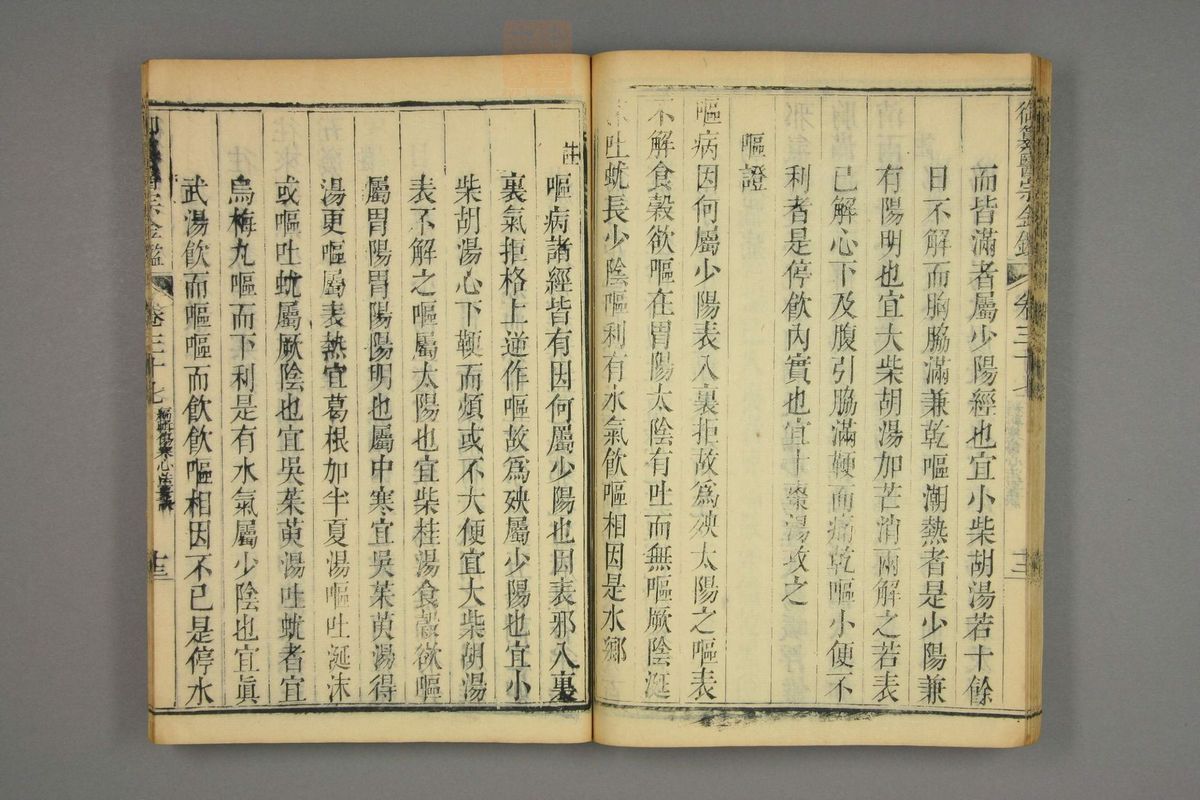 御纂醫宗金鑑 卷三十七 十三
而皆滿者屬少陽經也宜小柴胡湯若十餘
日不解而胸脇滿兼乾嘔潮熱者是少陽兼
有陽明也宜大柴胡湯加芒消兩解之若表
已解心下及腹引脇滿鞕而痛乾嘔小便不
利者是停飲內實也宜十棗湯攻之
嘔證
嘔病因何屬少陽表入裏拒故爲殃太陽之嘔表
不解食穀欲嘔在胃陽太陰有吐而無嘔厥陰涎
吐蚘長少陰嘔利有水氣飲嘔相因是水鄉
註 嘔病諸經皆有因何屬少陽也因表邪入裏
裏氣拒格上逆作嘔故爲殃屬少陽也宜小
柴胡湯心下鞕而煩或不大便宜大柴胡湯
表不解之嘔屬太陽也宜柴桂湯食穀欲嘔
屬胃陽胃陽陽明也屬中寒宜吳茱萸湯得
湯更嘔屬表熱宜葛根加半夏湯嘔吐涎沫
或嘔吐蚘屬厥陰也宜吳茱萸湯吐蚘者宜
烏梅丸嘔而下利是有水氣屬少陰也宜眞
武湯飲而嘔嘔而飲飲嘔相因不已是停水
宗金鑑 卷三十七 編輯傷寒心法要訣 十三